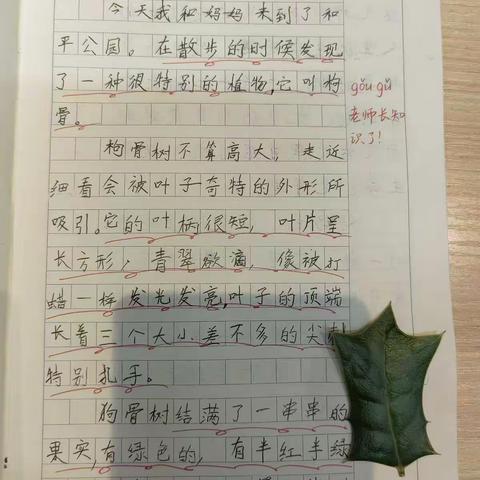 今天我和妈妈来到了和
平公园。在散步的时候发现
了一种很特别的植物,它叫枸
骨。
gǒu gǔ
老师长知
识了!
枸骨树不算高大,走近
细看会被叶子奇特的外形所
吸引。它的叶柄很短,叶片呈
长方形,青翠欲滴,像被打
蜡一样发光发亮,叶子的顶端
长着三个大小差不多的尖刺
特别扎手。
枸骨树结满了一串串的
果实,有绿色的,有半红半绿